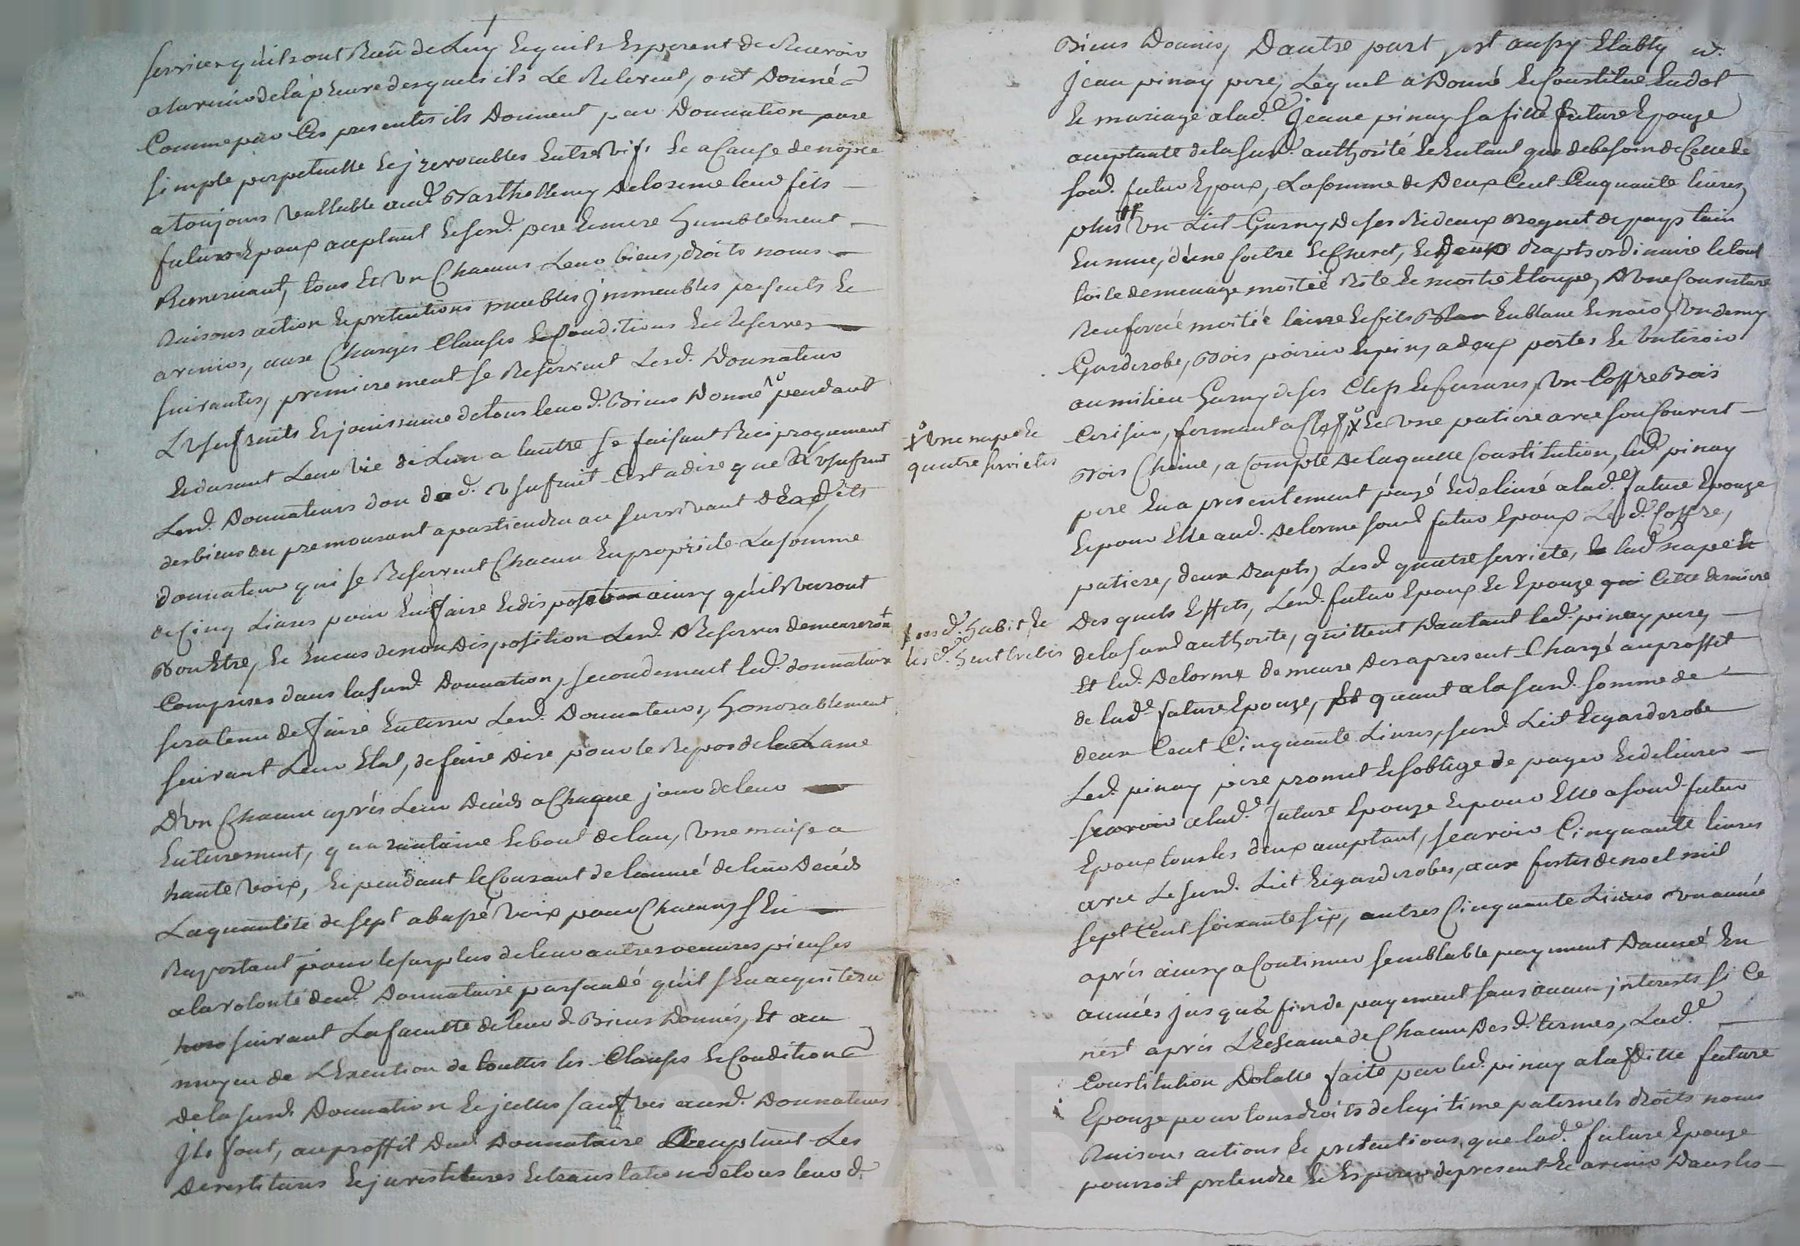 services qu'ils ont Reçu de Luy Et quils Esperent de Recevoir
a lavenir de la preuve desquels ils Le Relevent, ont Donné
Comme par Ces presentes ils Donnent par Donnation pure
simple perpetuelle Et jrrevocables Entre Vifs Et a Cause de nopce
a toujours vallable aud. Barthellemy Delorme leur fils
futur Epoux acceptant Et sesd. pere Et mere humblement
Remerciant, tous Et Un Chacuns Leur biens, droits noms
Raisons action Et pretentions meubles jmmeubles presents Et
avenirs, aux Charges Clauses Et Conditions Et Reserves
suivantes, premierement se Reservent Lesd. Donnateur
L'usufruits Et jouissance de tous leurd. Biens Donné pendant
Et durant Leur Vie de L'un a lautre se faisant Reciproquement
Lesd. Donnateurs don dud. usufruit C'est a dire que L'usufruit
des biens du premourant apartiendra au survivant
donnateur qui se Reservent Chacun En propriete La somme
de Cinq Livres pour En faire Et disposer ainsy qu'ils Verront
Bon Etre, Et En cas de non disposition Lesd. Reserves demeureront
Comprises dans lasusd. Donnation, secondement led. donnataire
sera tenu de faire Enterrer Lesd. Donnateurs, Honorablement
suivant Leur Etat, de faire dire pour le Repos de Lame
D'Un Chacun après Leur Décéds a Chaque jour de leur
Enterrement, quarantaine Et bout de lan, Une messe a
haute Voix, Et pendant le Courant de lannée de leur Décéds
La quantité de sept a basse Voix pour Chacun, s'En
Raportant pour le surplus de leur autres oeuvres pieuses
a la volonté dud. Donnataire persuadé qu'il s'En acquitera
suivant La faculté de leurd. Biens Donnés, Et au
moyen de L'Execution de touttes les Clauses Et Conditions
de la susd. Donnation Et jcelles sauf Vis aud. Donnateurs
Jls font, au proffit dud. Donnataire acceptant Les
Devestitures Et jnvestitures Et translation de tous leurd.
x Une nape Et
quatre serviettes
+ Habit Et
Biens Donnés, D'autre part, s'est aussy Etably sr.
Jean pinay pere, Lequel a Donné Et Constitué En dot
Et mariage a lad. Jeane pinay sa fille future Epouze
acceptante de la susd. authorité Et En tant que de besoin de Celle de
sond. futur Epoux, La somme de Deux Cent Cinquante livres
plus Un Lit Garny de ses Rideaux
En Une
toile de menage moitié Rite Et moitié Etoupe, D'Une Couverture
Renforcé moitié laine Et fils En blanc Et noir, Un demy
Garderobe, Bois poirier Et pin, a deux portes Et Un tiroir
au milieu Garny de ses Clefs Et serrures, Un Coffre Bois
Cerisier, fermant a Clef, x Et Une patiere avec son Couvert
Bois Chêne, a Compte de laquelle Constitution, led. pinay
pere En a presentement payé Et delivré a lad. future Epouze
Et pour Elle aud. Delorme sond. futur Epoux Led. Coffre,
patiere, deux Drapts, Lesd. quatre serviete, Et lad. nape
Desquels Effets, Lesd. futur Epoux Et Epouze Cette derniere
de la susd. authorité, quittent D'autant led. pinay pere,
Et led. Delorme demeure Des a present Chargé au proffit
de lad. future Epouze, Et quant a la susd. somme de
deux Cent Cinquante Livres, susd. Lit Et garderobe
Led. pinay pere promet Et s'oblige de payer Et delivrer
a lad. future Epouze Et pour Elle a sond. futur
Epoux tous les deux acceptant, scavoir Cinquante livres
avec Le susd. Lit Et garderobes, aux festes de noel mil
sept Cent soixante six, autres Cinquante Livres Une année
après ainsy a Continuer semblable payement D'année En
années jusqu'a fin de payement sans aucun jnterests si Ce
n'est après L'Echeance de Chacun Desd. termes, Lad.
Constitution Dotalle faite par led. pinay a la Ditte future
Epouze pour tous droits de legitime paternels droits noms
Raisons actions Et pretentions, que lad. future Epouze
pourroit pretendre Et Esperer de present Et avenir Dans les